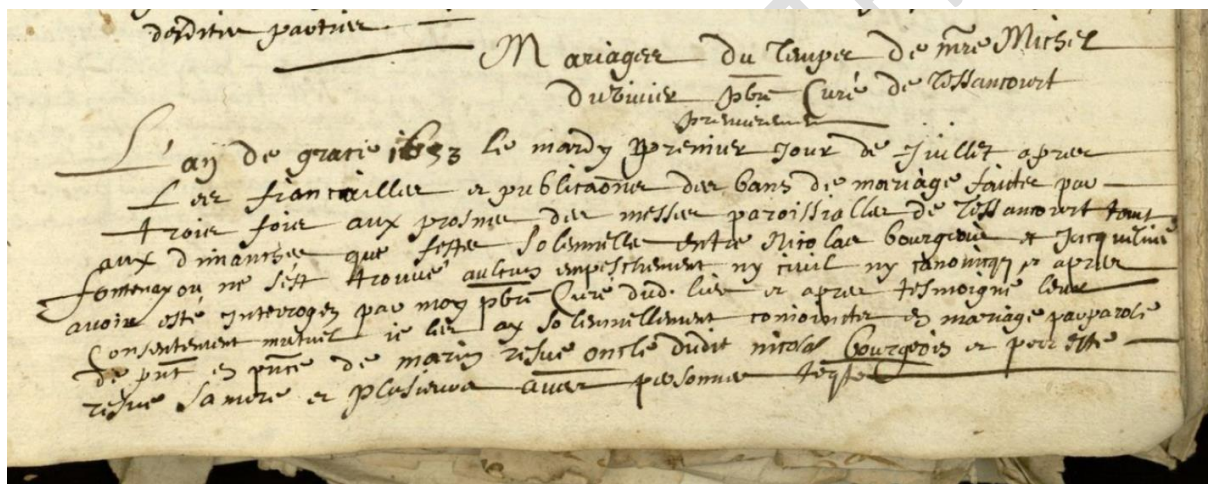 Mariages du temps de mre Michel
duvivier pbre Curé de Tessancourt
premierement
L'an de grace 1653 le mardy premier jour de Juillet apres
Les fiancailles et publicaones des bans de mariage faictes par
trois fois aux prosnes des messes paroissialles de Tessancourt tant
aux dimanches que festes solennelles entre Nicolas bourgeois et Jacqueline
fontenay ou ne s'est trouvé aulcun empeschement ny civil ny canonicq et apres
avoir esté interrogez par moy pbre Curé dud. lieu et apres tesmoigné leur
Consentement mutuel je les ay solennellement conjoincts en mariage par parole
de pnt en pnce de marin oncle dudit nicolas bourgeois et
sa mere et plusieurs aures personnes